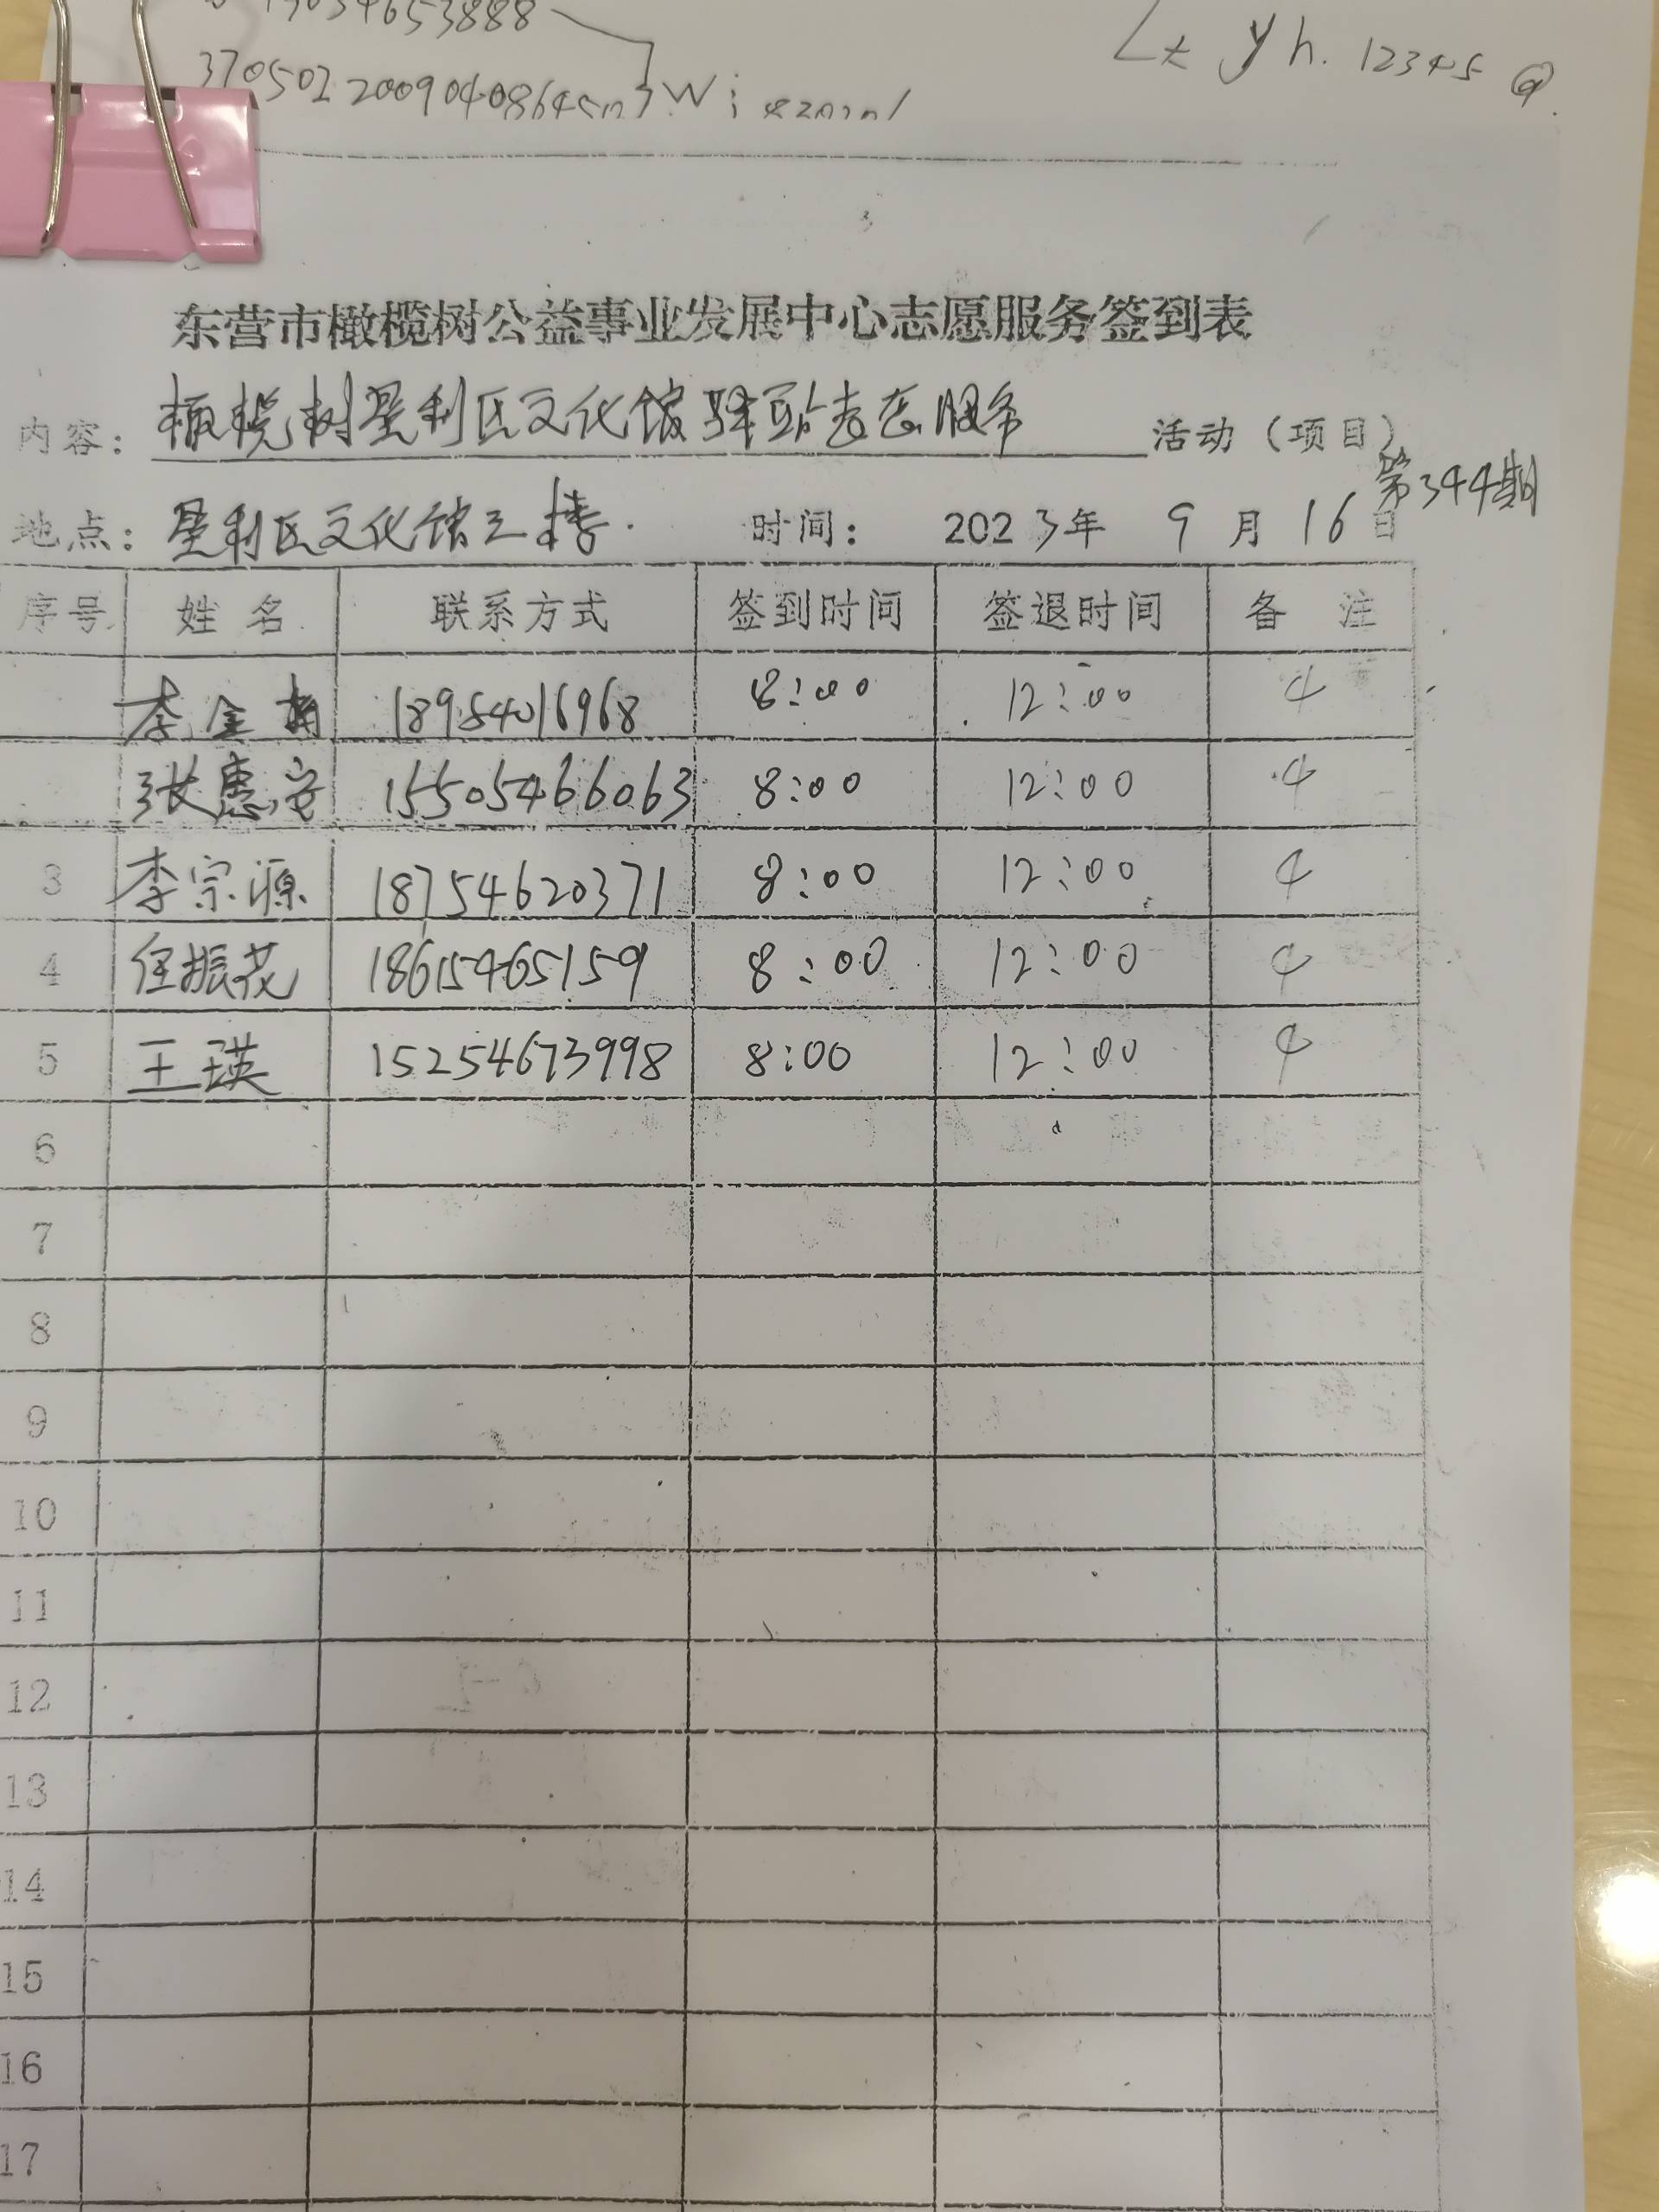 370502200904086
Lz yh. 12345 @
东营市橄榄树公益事业发展中心志愿服务签到表
内容： 橄榄树垦利区文化馆驿站志愿服务 活动（项目）
第344期
地点： 垦利区文化馆三楼. 时间： 2023年 9月16日
序号 姓名 联系方式 签到时间 签退时间 备注
李金 18954016968 8:00 12:00 4
张惠安 15505466063 8:00 12:00 4
3 李宗源 18754620371 8:00 12:00 4
4 任振花 18615465159 8:00 12:00 4
5 王瑛 15254673998 8:00 12:00 4
6
7
8
9
10
11
12
13
14
15
16
17